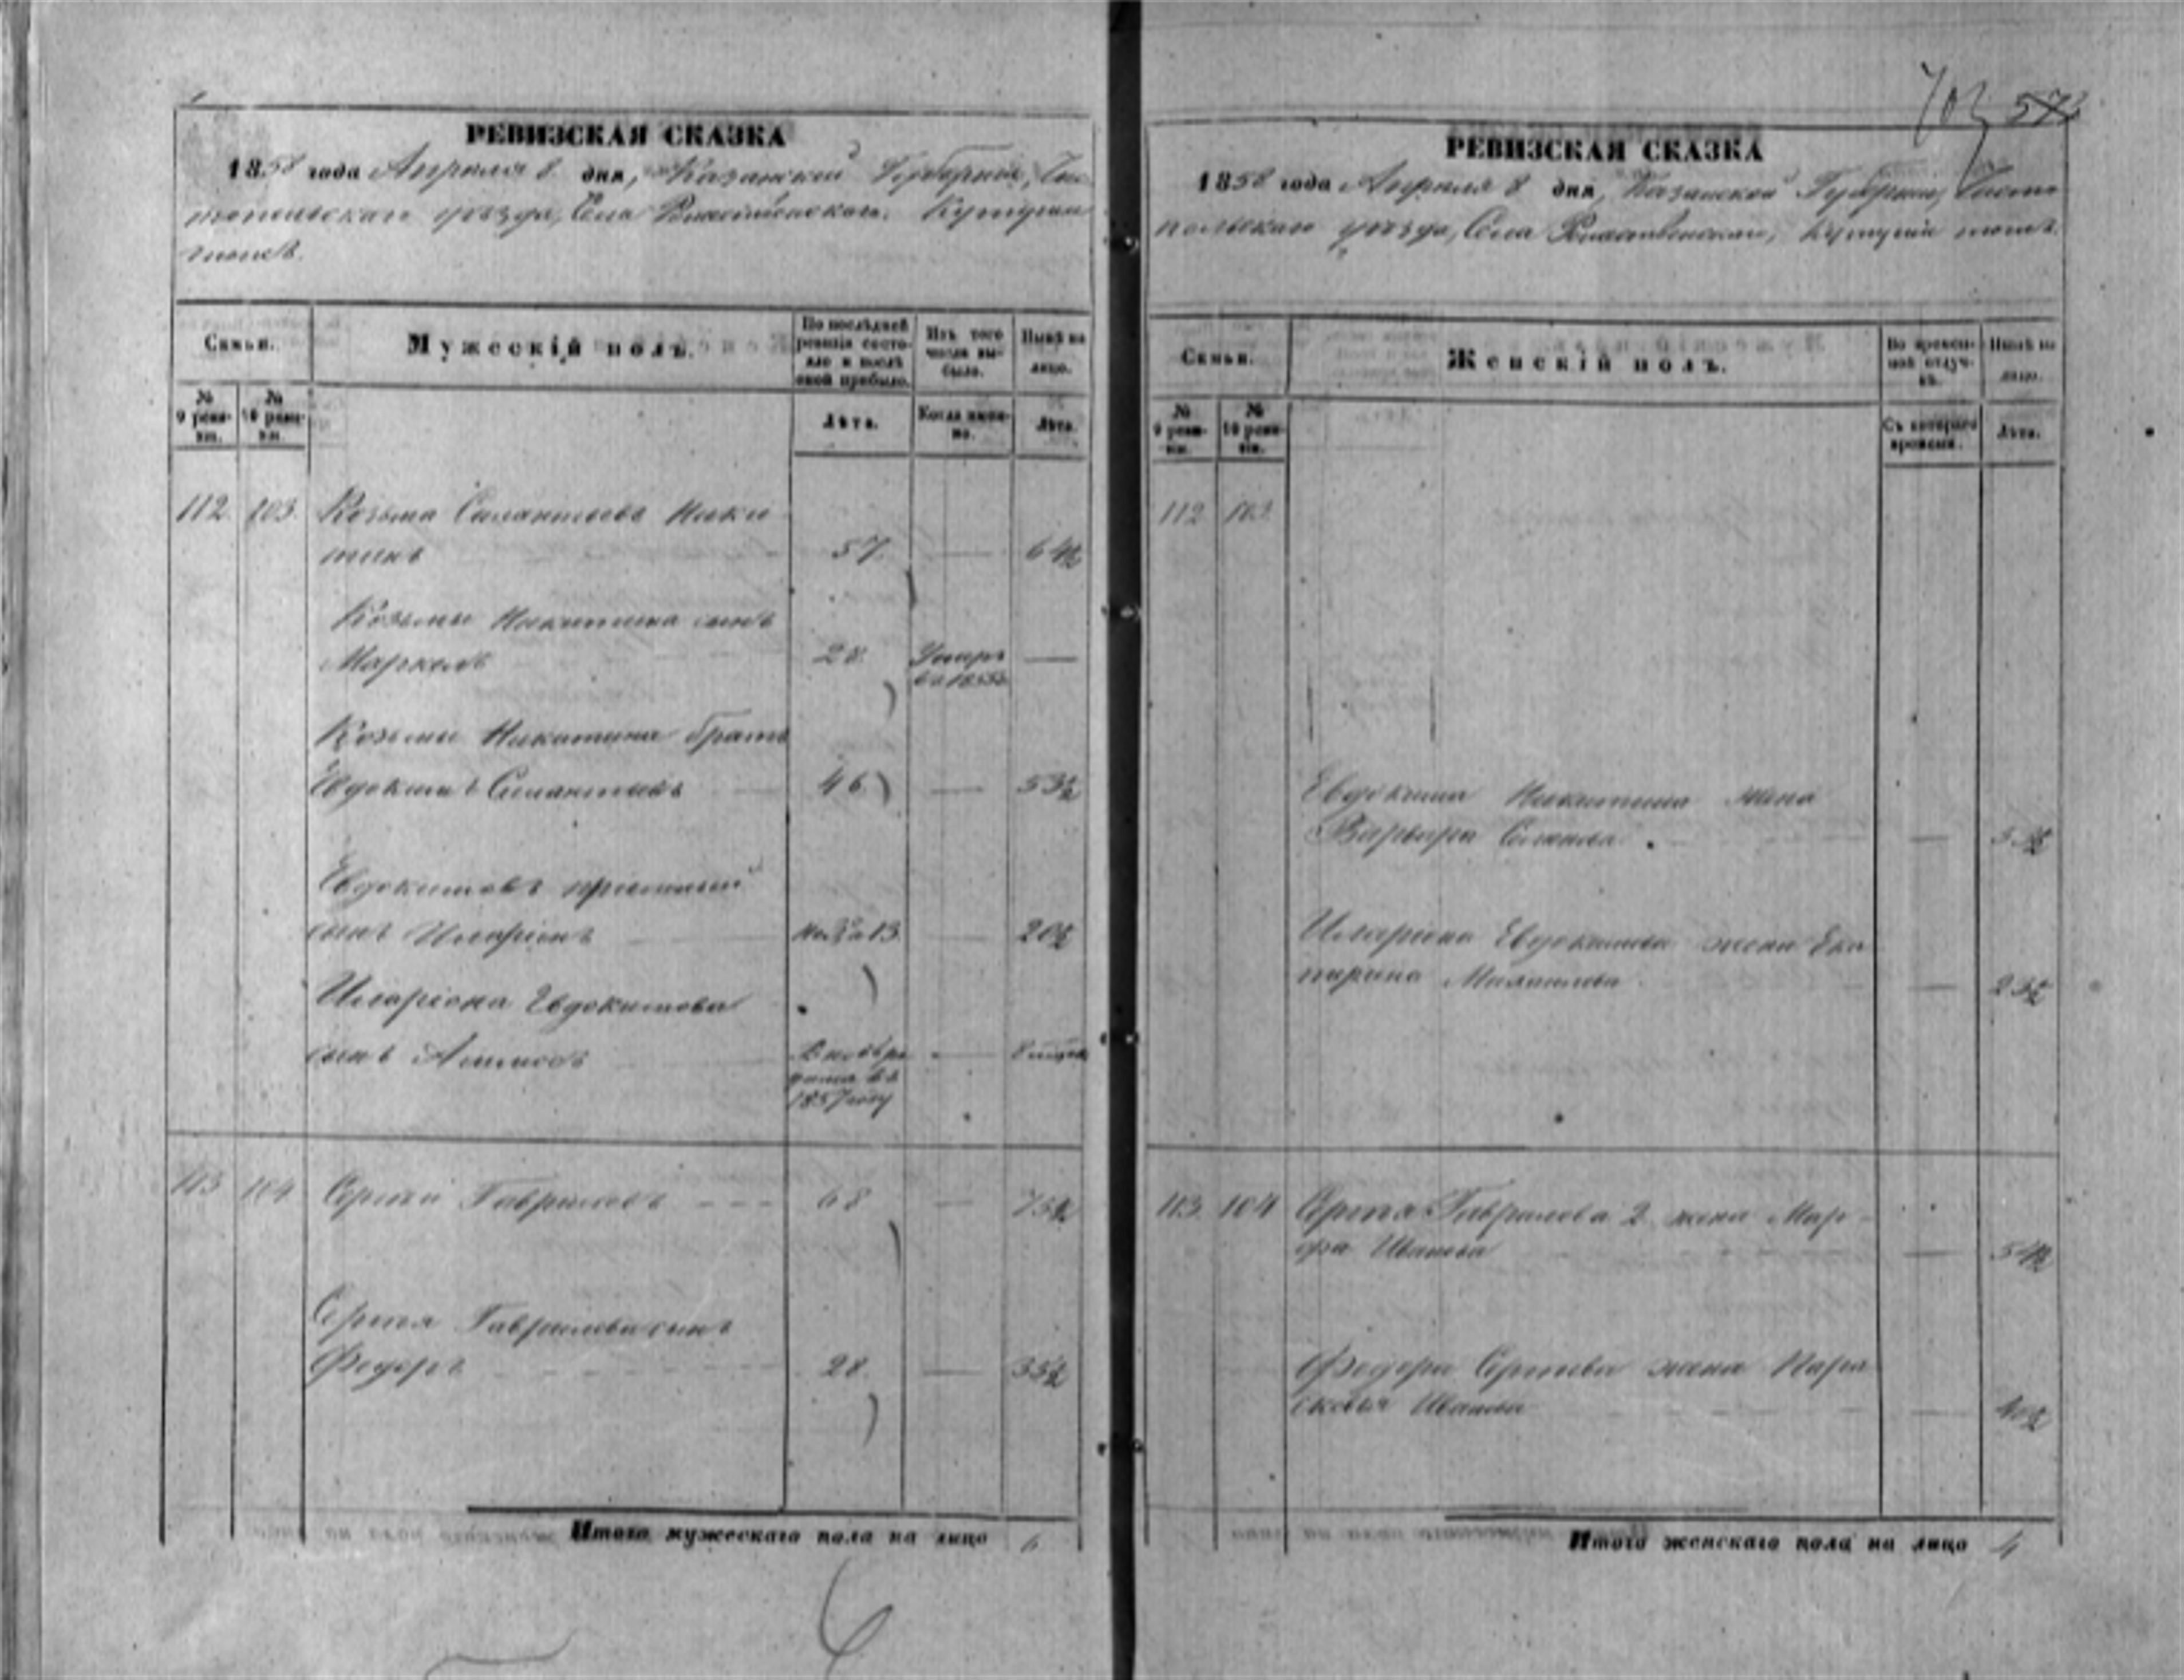 РЕВИЗСКАЯ СКАЗКА
1858 года Апреля 8 дня, Казанской Губернии, Чис
топольскаго уѣзда, Села Рождественскаго, Кутуш
тожъ.
Семьи.
Мужескій полъ.
По послѣдней ревизіи состояло и послѣ оной прибыло.
Изъ того числа выбыло.
Нынѣ на лицо.
№ 9 ревизіи.
№ 10 ревизіи.
Лѣта.
Когда именно.
Лѣта.
112. 103. Козьма Силантьевъ Ники
тинъ 57. — 64½
Козьмы Никитина сынъ
Маркелъ 28. Умеръ —
въ 185
Козьмы Никитина братъ
Евдокимъ Силантьевъ 46 — 53½
Евдокимовъ пріемный
сынъ Иларіонъ 13. — 20½
Иларіона Евдокимова
сынъ —
въ
1857 году
113 104 Сергѣй Гавриловъ 68 — 75½
Сергѣя Гаврилова сынъ
Федоръ 28. — 35½
Итого мужескаго пола на лицо 6
6
703 572
РЕВИЗСКАЯ СКАЗКА
1858 года Апреля 8 дня, Казанской Губерніи, Чисто
польскаго уѣзда, Села Рождественскаго, тожъ.
Семьи.
Женскій полъ.
Во временной отлучкѣ.
Нынѣ на лицо.
№ 9 ревизіи.
№ 10 ревизіи.
Съ котораго времени.
Лѣта.
112 103
Евдокима Никитина жена
Варвара —
Иларіона Евдокимова жена Ека
терина Михайлова — 23½
113. 104 Сергѣя Гаврилова 2 жена Мар
фа Иванова — 54½
Федора Сергѣева жена Пара
сковья Иванова —
Итого женскаго пола на лицо 4